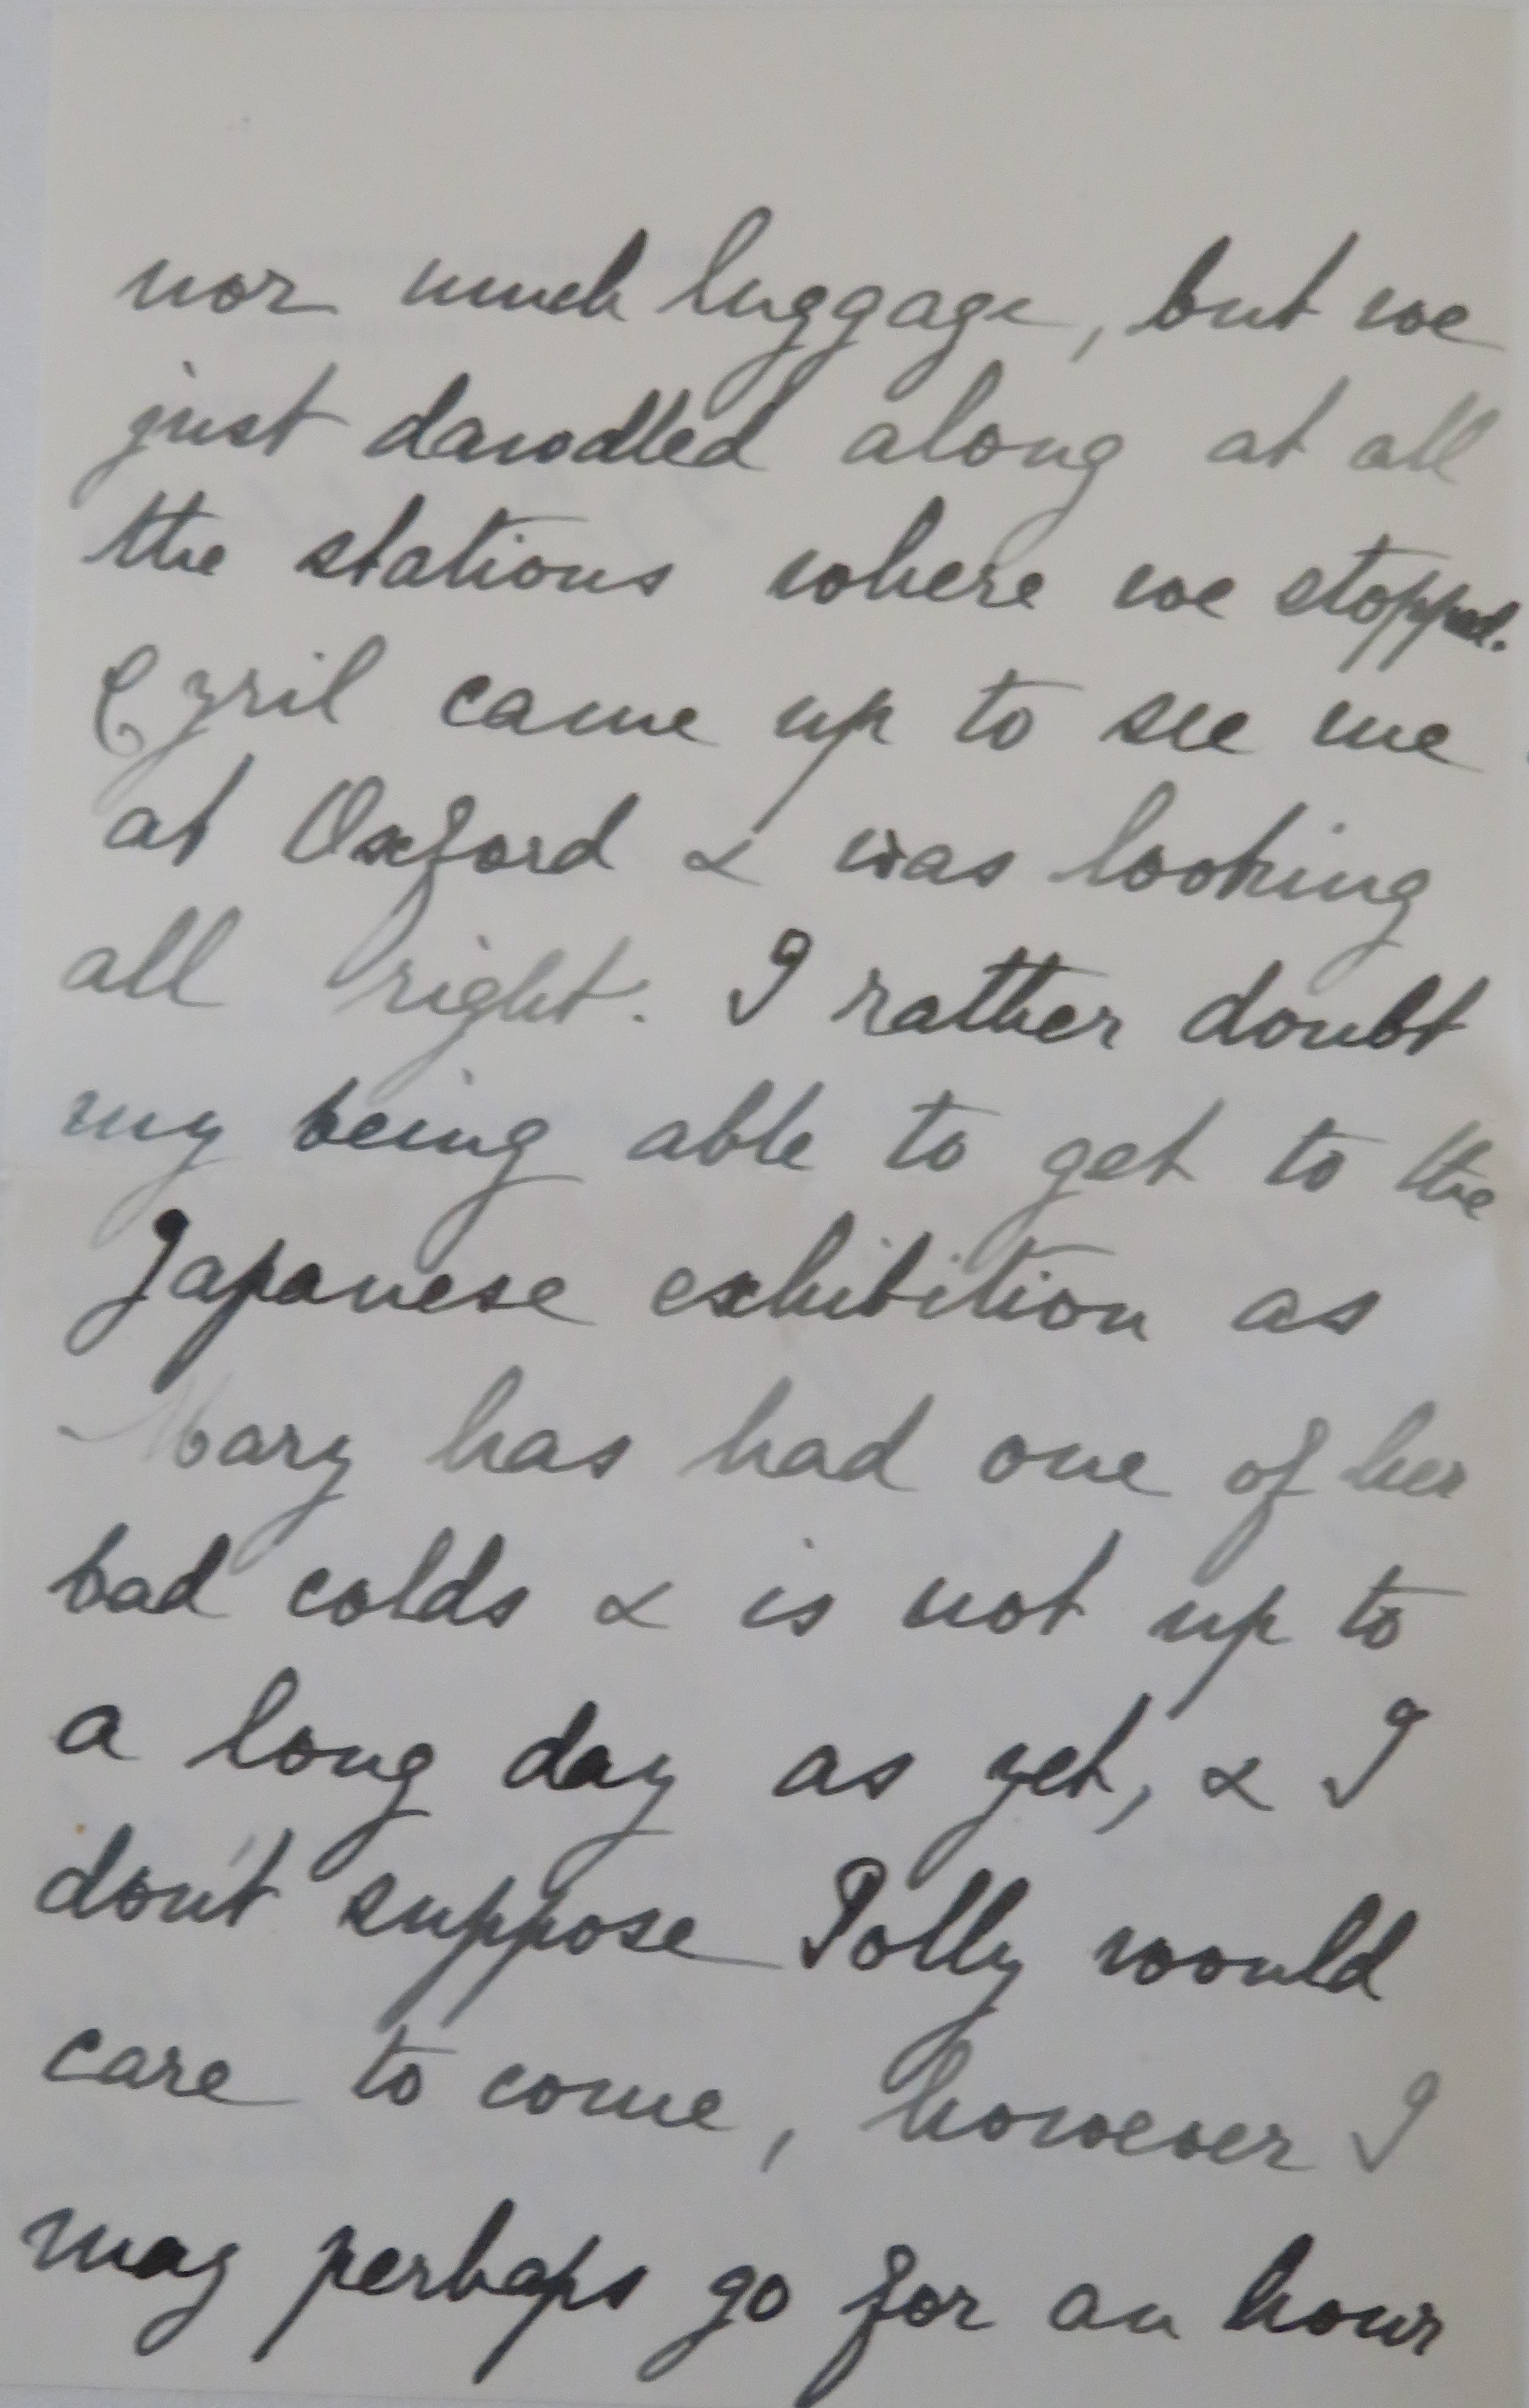 nor much luggage, but we
just dawdled along at all
the stations where we stopped.
Cyril came up to see me
at Oxford & was looking
all right. I rather doubt
my being able to get to the
Japanese exhibition as
Mary has had one of her
bad colds & is not up to
a long day as yet, & I
don't suppose Polly would
care to come, however I
may perhaps go for an hour